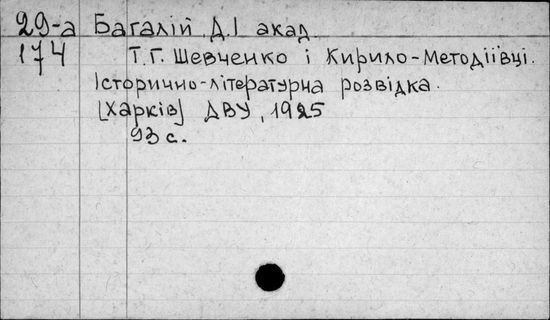 29-а Багалій Д.І акад.
174 Т.Г. Шевченко і Кирило-Методіївці.
Історично-літературна розвідка.
[Харків] ДВУ, 1925
93 с.